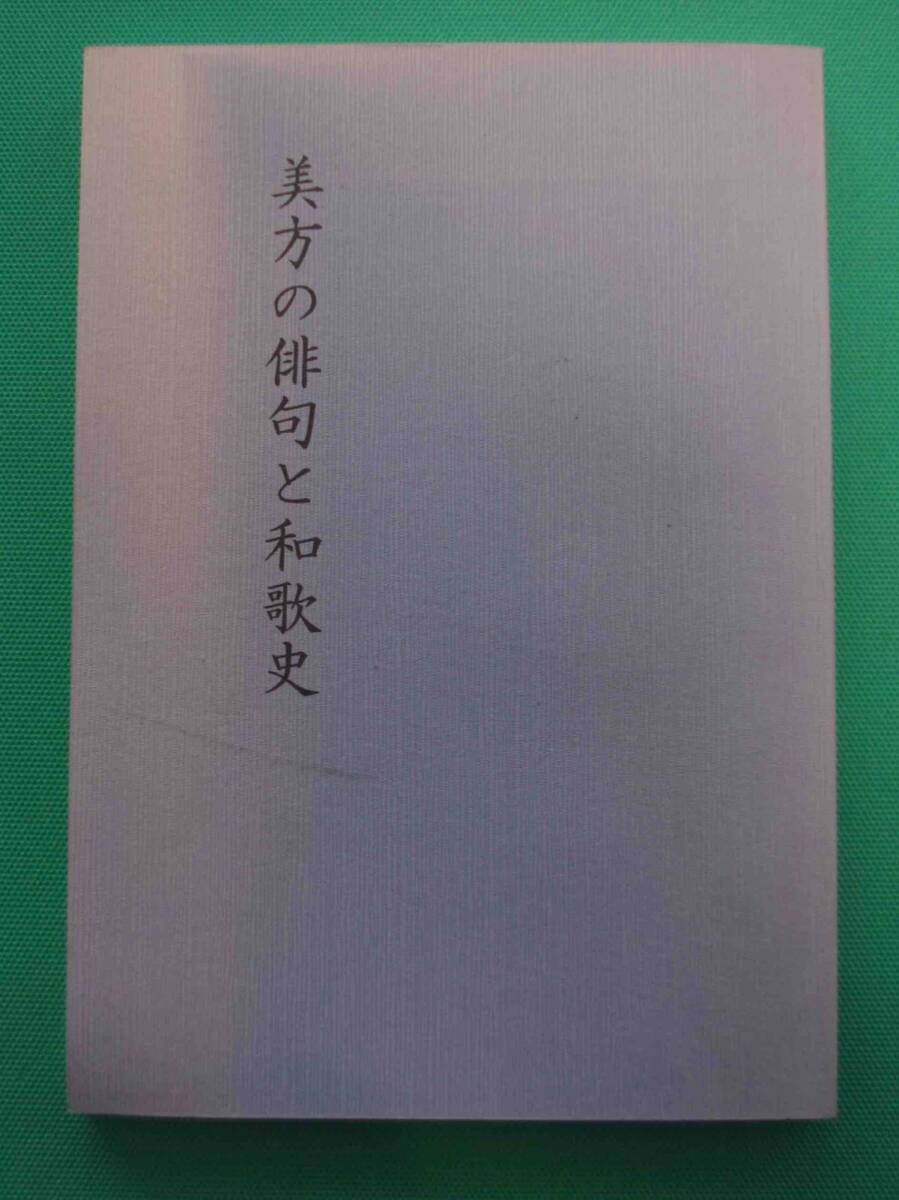 美方の俳句と和歌史